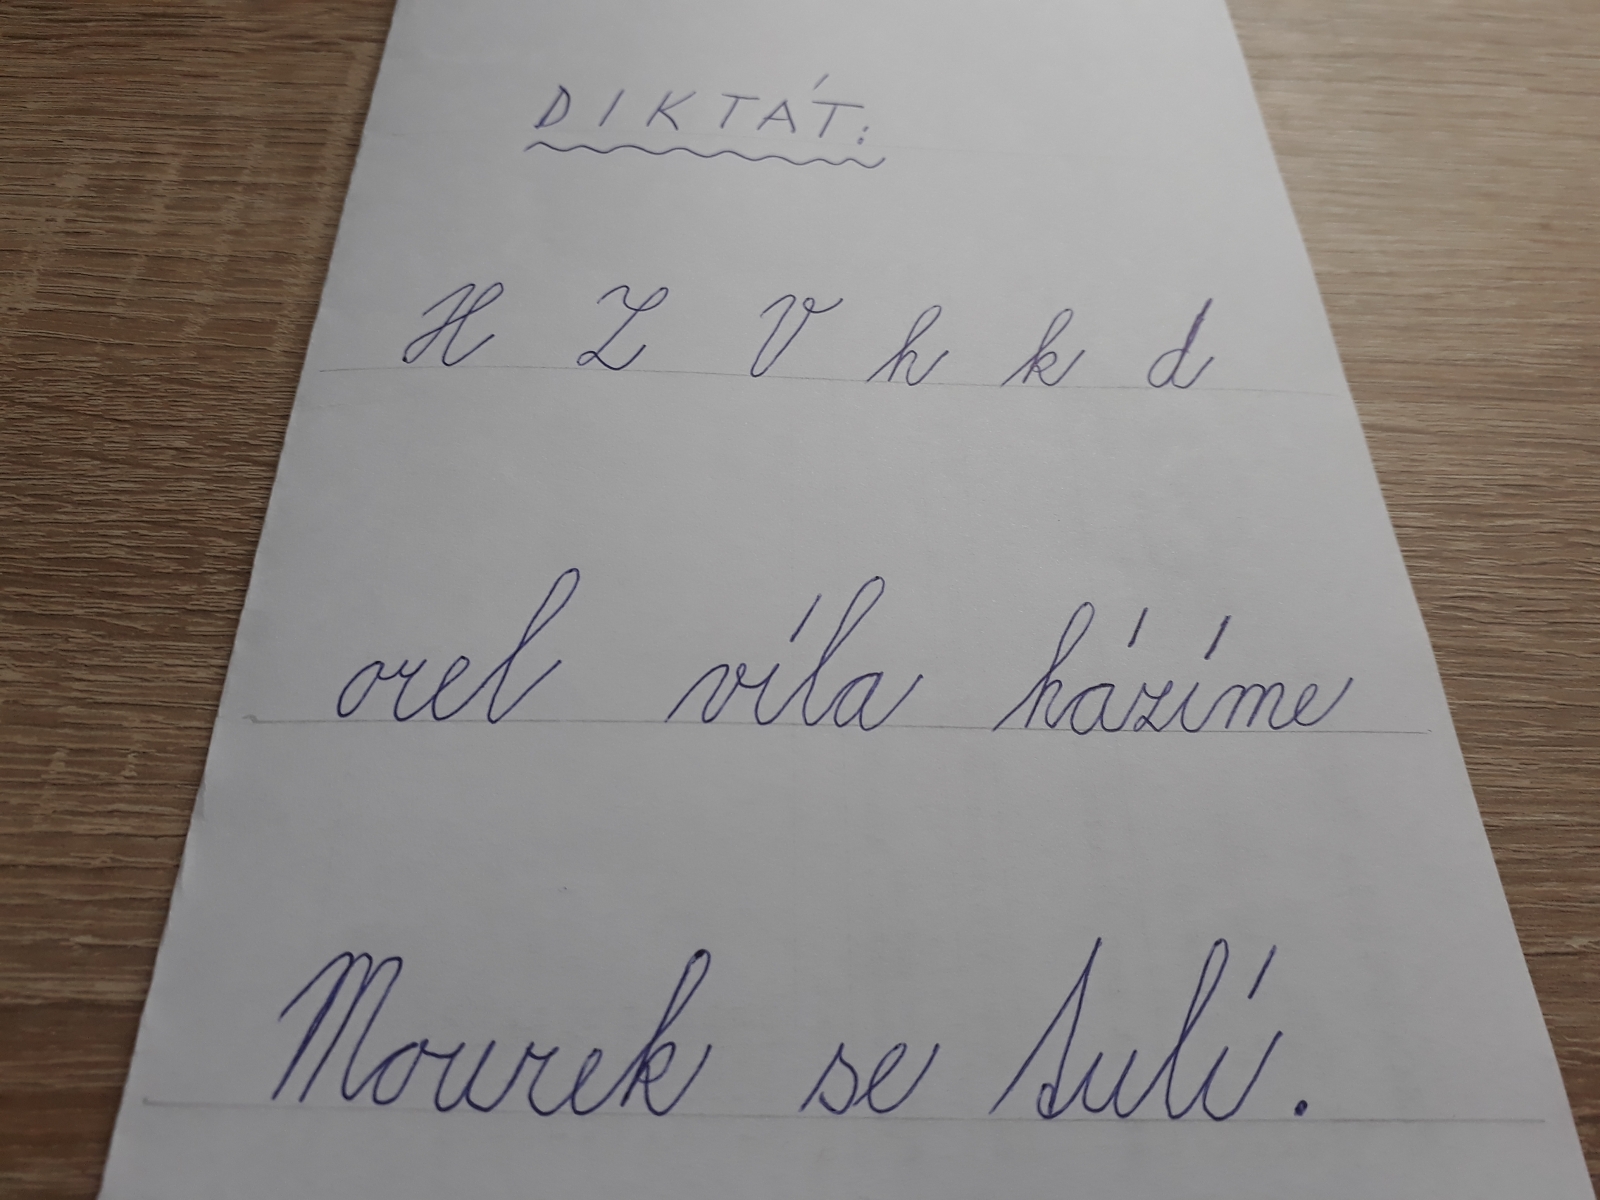 DIKTÁT:
H Z V h k d
orel víla házíme
Mourek se tulí.